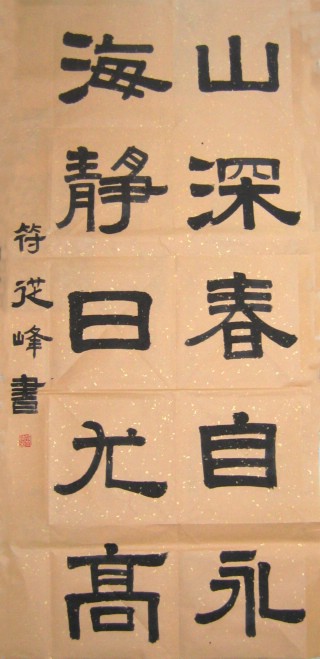 山深春自永
海靜日尤高
符從峰書